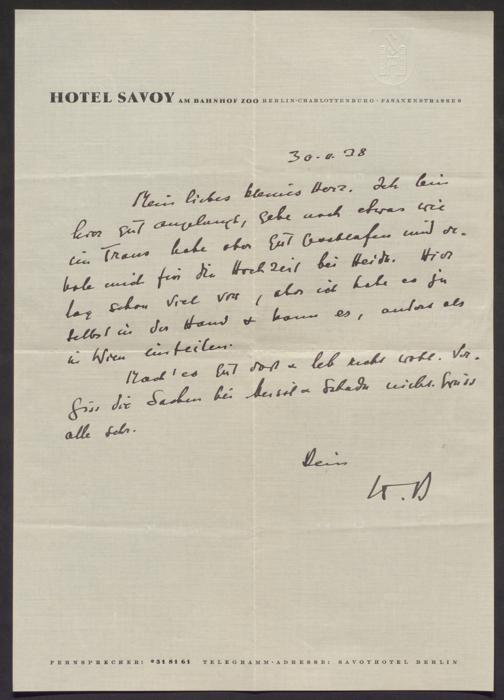 HOTEL SAVOY AM BAHNHOF ZOO BERLIN-CHARLOTTENBURG · FASANENSTRASSE 9
Mein liebes kleines Herz. Ich bin
hier gut angelangt, gehe noch etwas wie
im Traum habe aber gut geschlafen und er-
hole mich für die Hochzeit bei Heidi. Hier
lag schon viel vor, aber ich habe es ja
selbst in der Hand & kann es, anders als
in Wien einteilen.
Mach's gut dort & leb recht wohl. Ver-
giss die Sachen bei & nicht. Grüss
alle sehr.
Dein
FERNSPRECHER: *318161 TELEGRAMM-ADRESSE: SAVOYHOTEL BERLIN